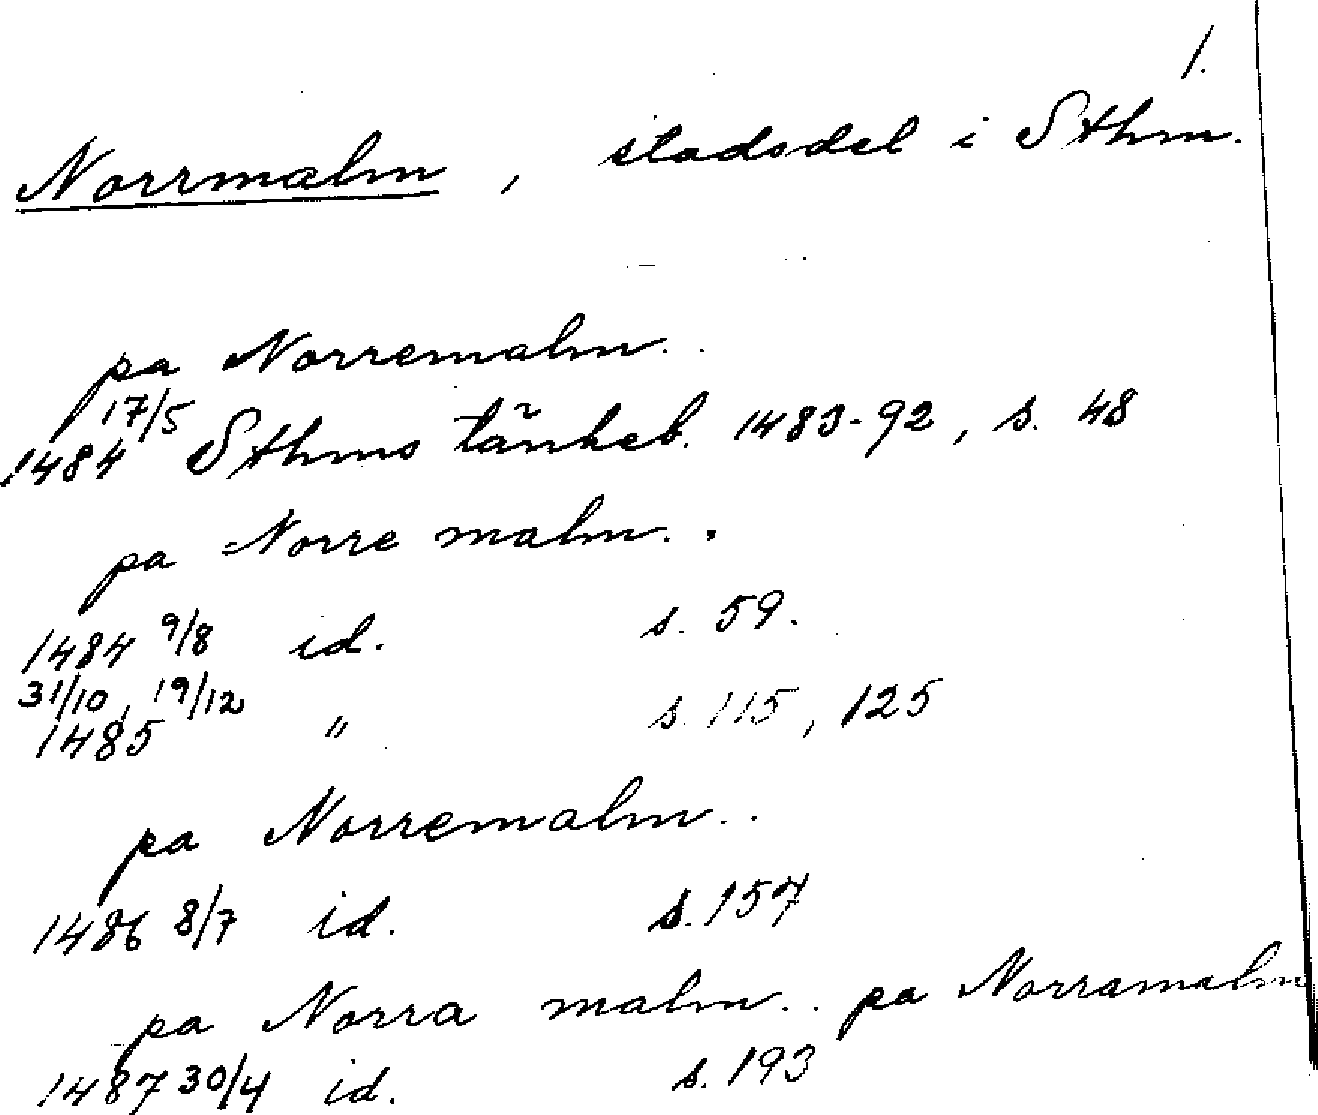 1.
Norrmalm, stadsdel i Sthm.
pa Norremalm..
17/5
1484 Sthms tänkeb. 1483-92, s. 48
pa Norre malm..
1484 9/8 id. s. 59.
31/10, 19/12
1485 " s. 115, 125
pa Norremalm..
1486 8/7 id. s. 157
pa Norra malm.. pa Norramalm
1487 30/4 id. s. 193